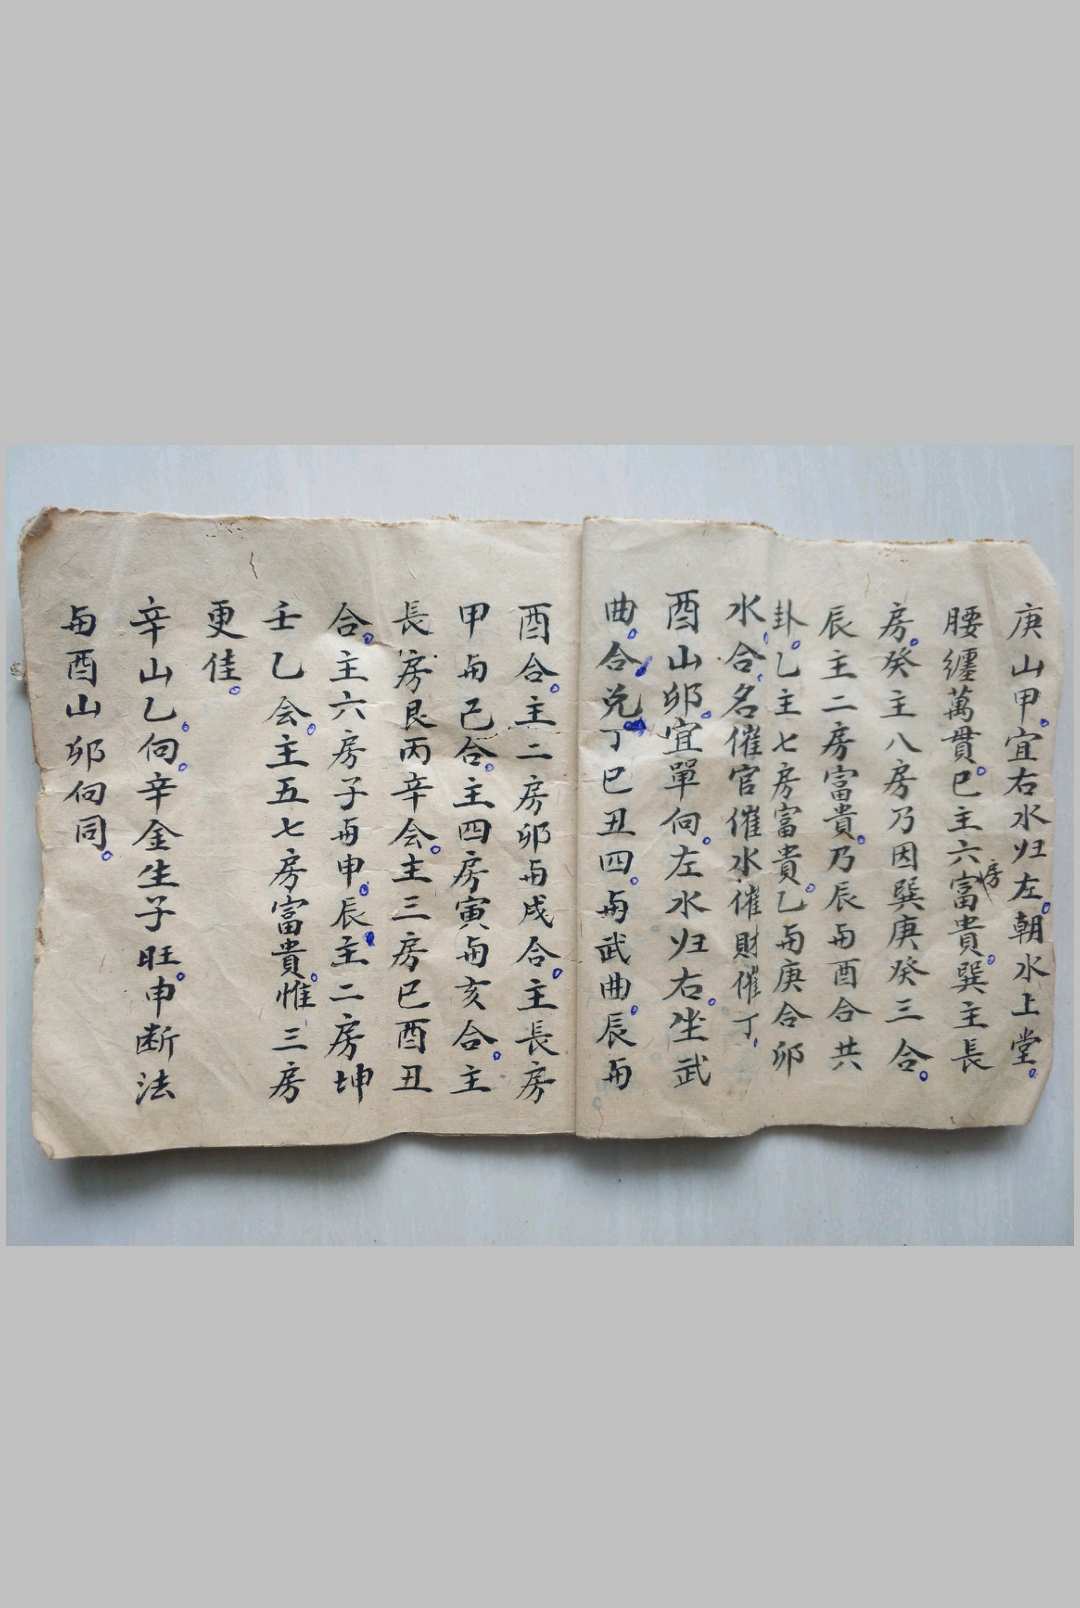 庚山甲。宜右水归左。朝水上堂。
腰纏萬貫。巳主六房富貴。巽主長
房。癸主八房乃因巽庚癸三合。
辰主二房富貴。乃辰与酉合共
卦。乙主七房富貴。乙与庚合卯
水合名催官催水催財催丁
酉山卯。宜單向。左水归右。坐武
曲。合兑丁巳丑四。与武曲。辰与
酉合。主二房卯与戌合。主長房
甲与己合。主四房寅与亥合。主
長房艮丙辛会。主三房巳酉丑
合。主六房子与申。辰。主二房坤
壬乙会。主五七房富貴。惟三房
更佳。
辛山乙。向。辛金生子旺。申断法
与酉山卯向同。